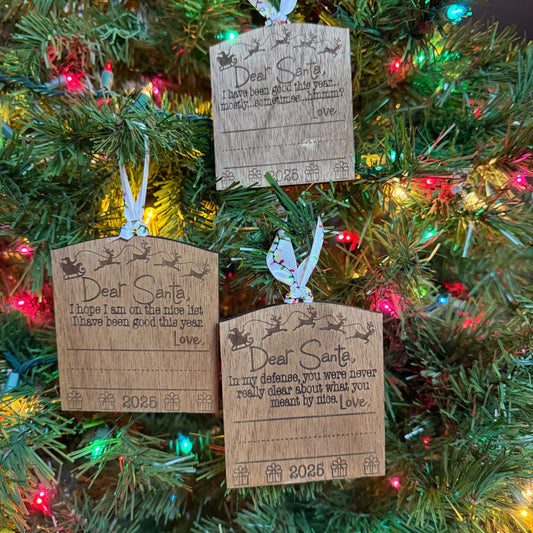 Dear Santa,
I have been good this year...
mostly...sometimes...hmmm?
Love,
2025
Dear Santa,
I hope I am on the nice list
I have been good this year.
Love,
2025
Dear Santa,
In my defense, you were never
really clear about what you
meant by nice. Love,
2025